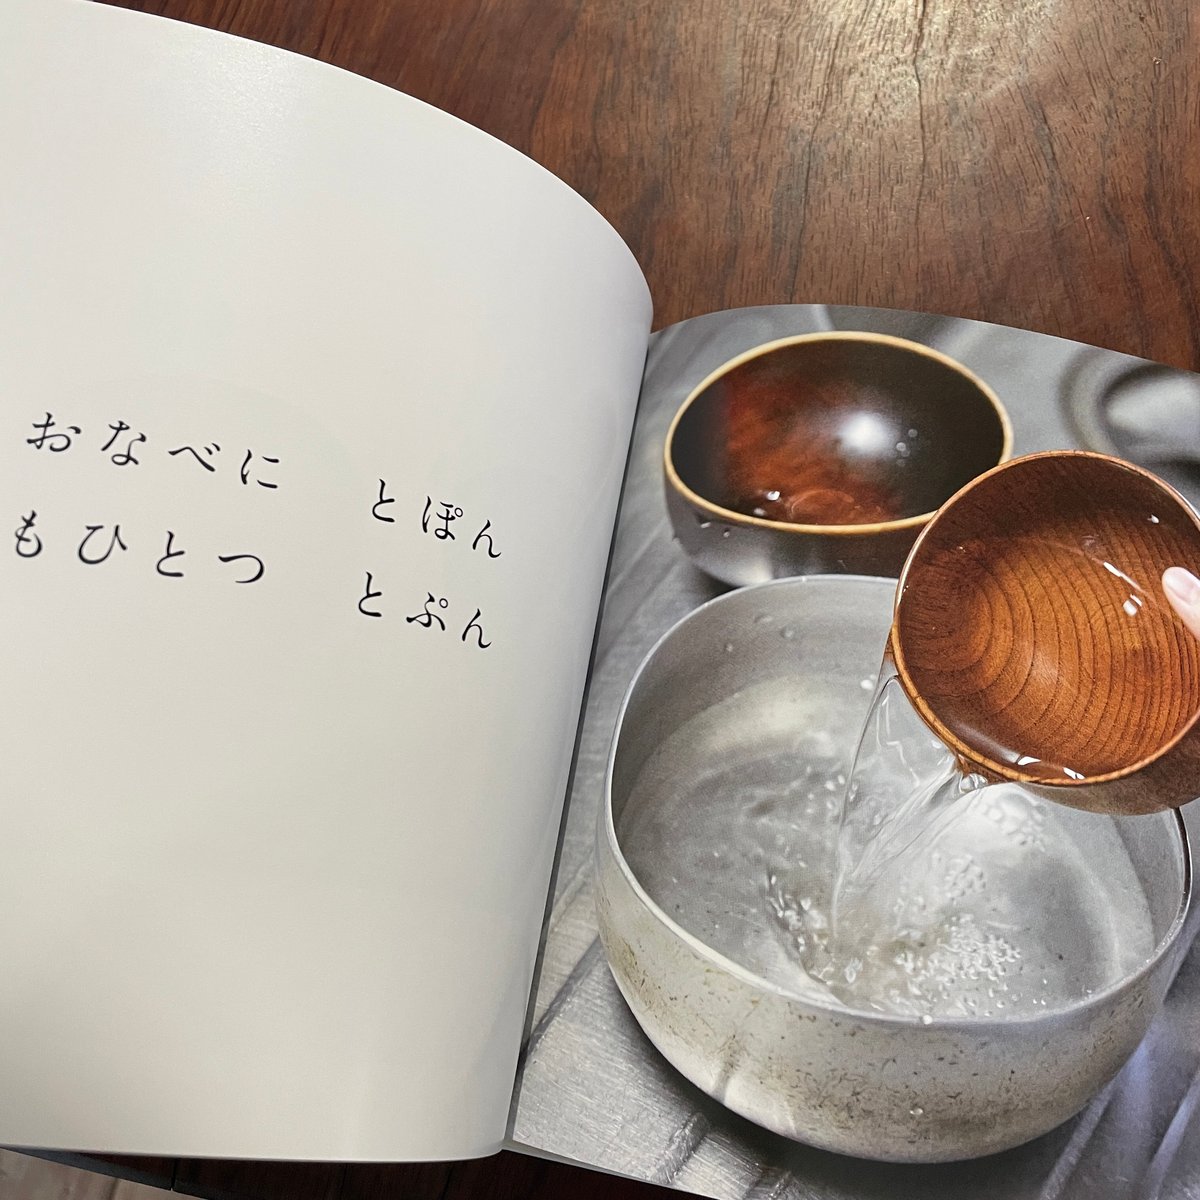 おなべに　とぽん
もひとつ　とぷん